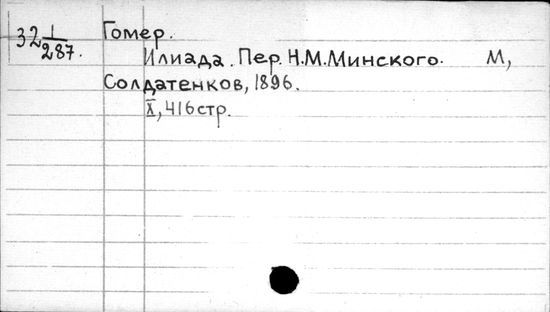 32 1/287. Гомер.
Илиада. Пер. Н.М.Минского. М,
Солдатенков, 1896.
X, 416 стр.